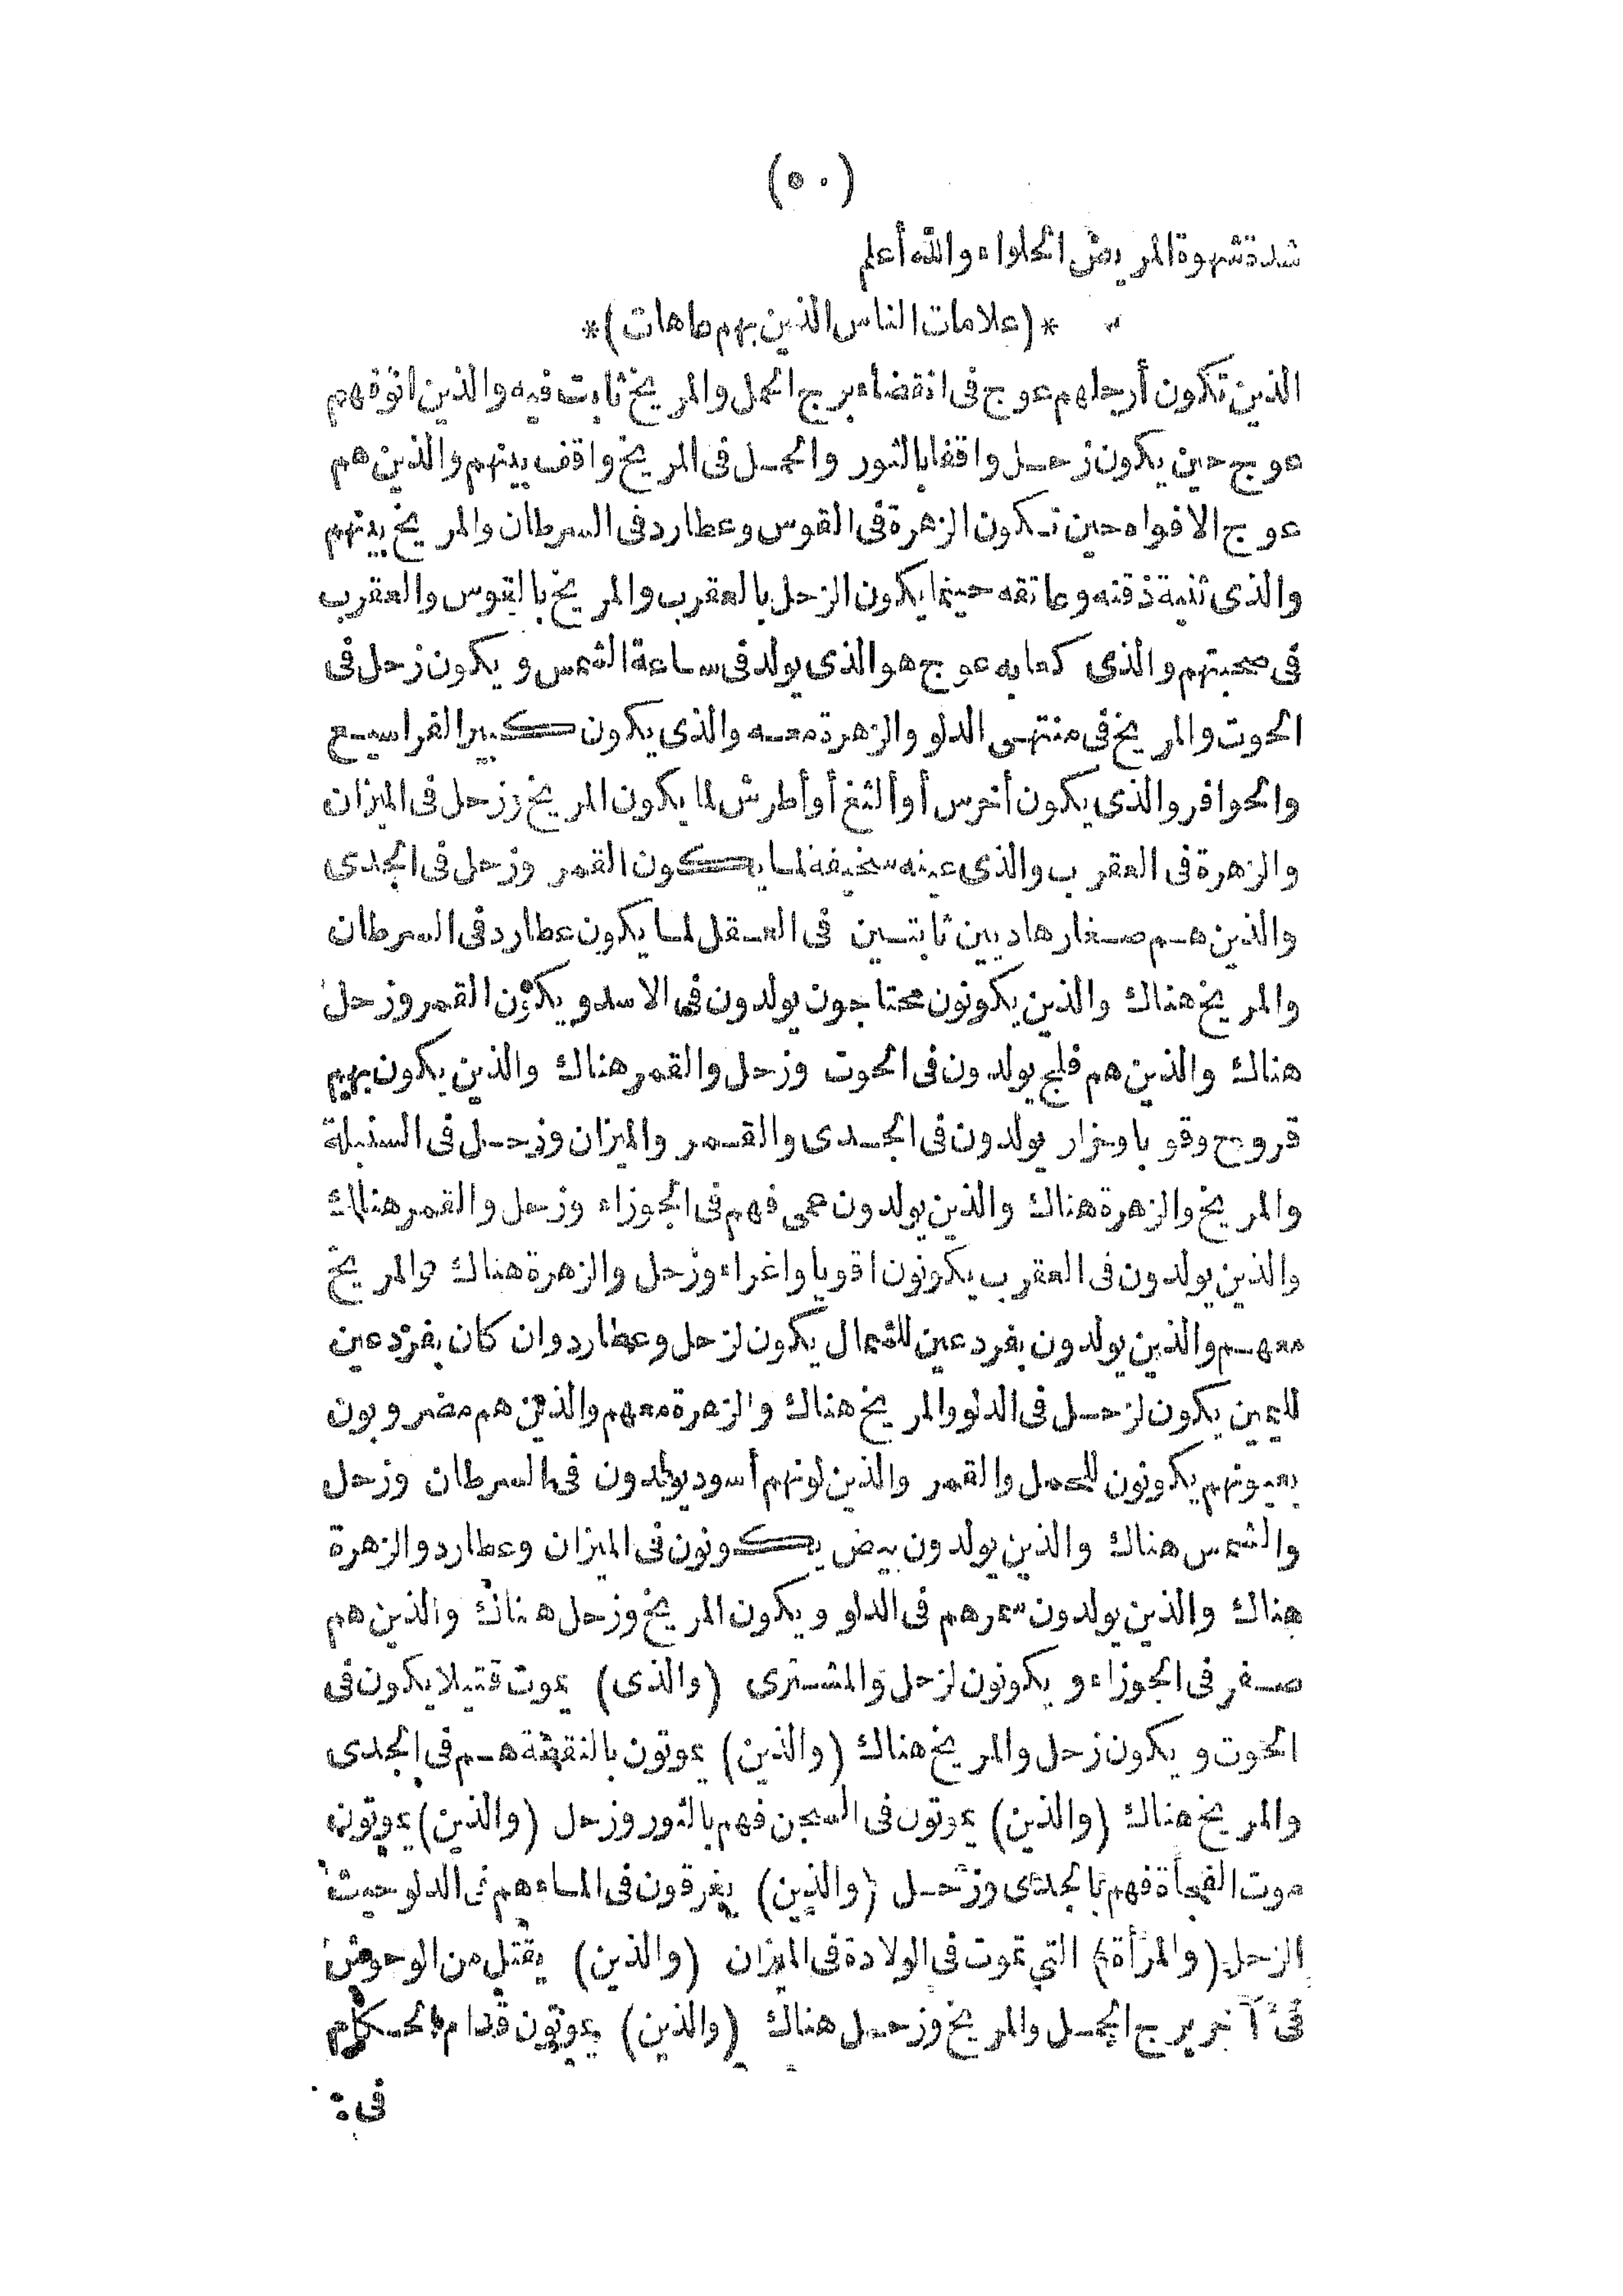 (٥٠)
شدة شهوة المريض الحلواء والله أعلم
*(علامات الناس الذين بهم عاهات)*
الذين تكون أرجلهم عوج فى انقضاء برج الحمل والمريخ ثابت فيه والذين انوفهم
عوج حين يكون زحل واقفا بالثور والحمل فى المريخ واقف بينهم والذين هم
عوج الافواه حين تكون الزهرة فى القوس وعطارد فى السرطان والمريخ بينهم
والذى ثنية ذقنه وعاتقه حينما يكون الزحل بالعقرب والمريخ بالقوس والعقرب
فى صحبتهم والذى كعابه عوج هو الذى يولد فى ساعة الشمس ويكون زحل فى
الحوت والمريخ فى منتهى الدلو والزهرة معه والذى يكون كبير الفراسيع
والحوافر والذى يكون أخرس أو ألثغ أو أطرش لما يكون المريخ وزحل فى الميزان
والزهرة فى العقرب والذى عينه سخيفة لما يكون القمر وزحل فى الجدى
والذين هم صغار هاديين ثابتين فى العقل لما يكون عطارد فى السرطان
والمريخ هناك والذين يكونون محتاجون يولدون فى الاسد ويكون القمر وزحل
هناك والذين هم فلج يولدون فى الحوت وزحل والقمر هناك والذين يكون بهم
قروح وقوبا وحزار يولدون فى الجدى والقمر والميزان وزحل فى السنبلة
والمريخ والزهرة هناك والذين يولدون عمى فهم فى الجوزاء وزحل والقمر هناك
والذين يولدون فى العقرب يكونون اقويا واغراء وزحل والزهرة هناك والمريخ
معهم والذين يولدون بفرد عين للشمال يكون لزحل وعطارد وان كان بفرد عين
لليمين يكون لزحل فى الدلو والمريخ هناك والزهرة معهم والذين هم مضروبون
بعيونهم يكونون للحمل والقمر والذين لونهم أسود يولدون فى السرطان وزحل
والشمس هناك والذين يولدون بيض يكونون فى الميزان وعطارد والزهرة
هناك والذين يولدون سمرهم فى الدلو ويكون المريخ وزحل هناك والذين هم
صفر فى الجوزاء ويكونون لزحل والمشترى (والذى) يموت قتيلا يكون فى
الحوت ويكون زحل والمريخ هناك (والذين) يموتون بالنقطة هم فى الجدى
والمريخ هناك (والذين) يموتون فى السجن فهم بالثور وزحل (والذين) يموتون
موت الفجأة فهم بالجدى وزحل (والذين) يغرقون فى الماء هم فى الدلو حيث
الزحل (والمرأة) التى تموت فى الولادة فى الميزان (والذين) يقتل من الوحوش
فى آخر برج الحمل والمريخ وزحل هناك (والذين) يموتون قدام الحكام
فى